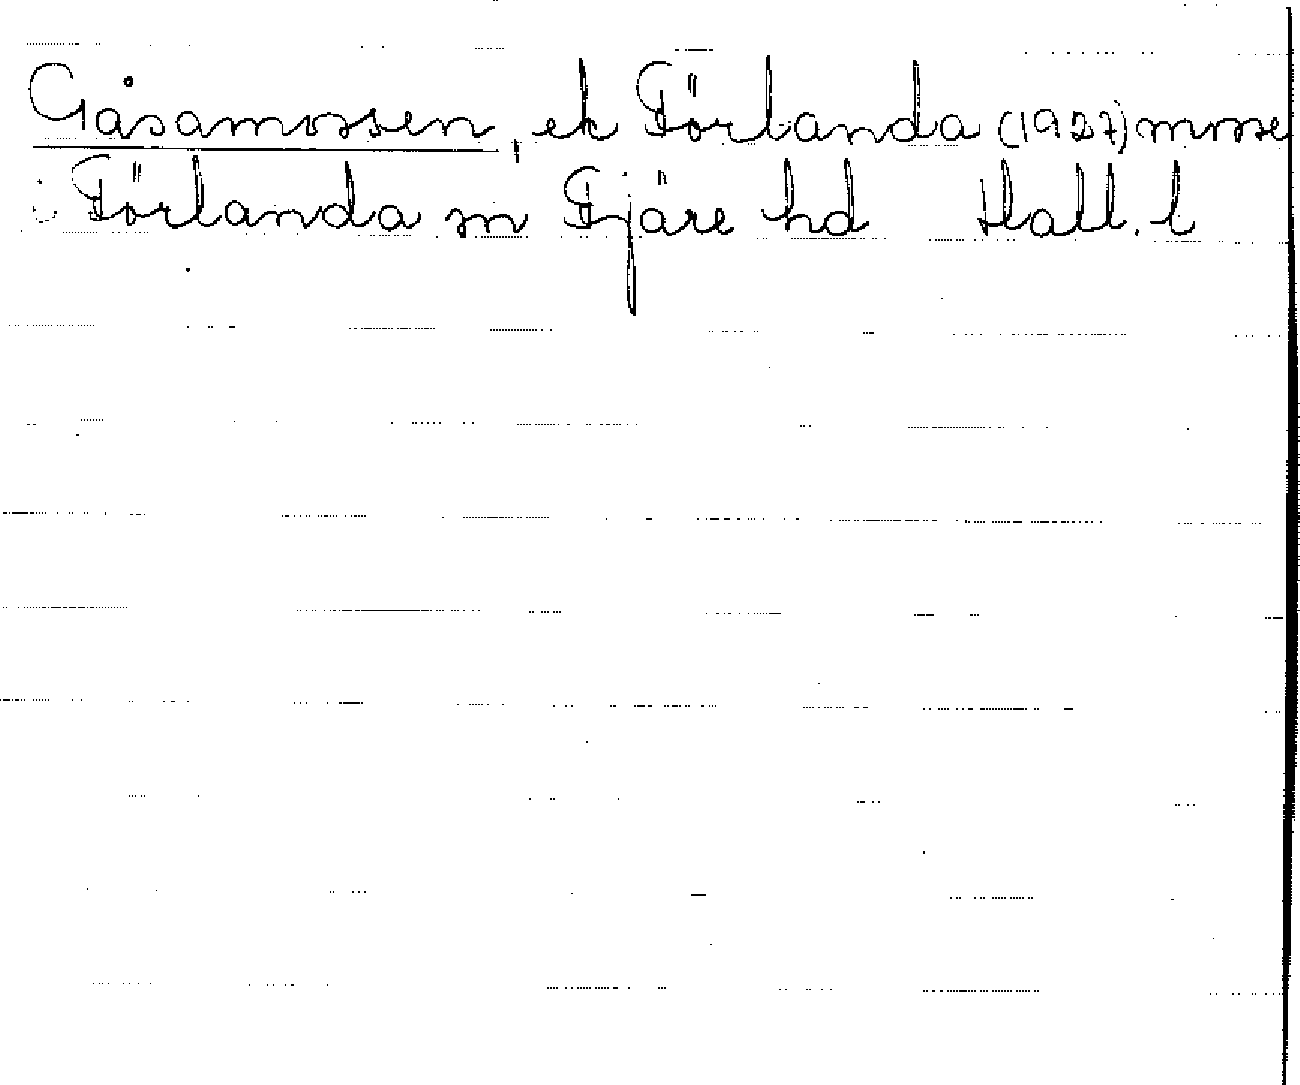 Gåsamossen, ek Förlanda (1927) mosse
i Förlanda sn Fjäre hd Hall. l